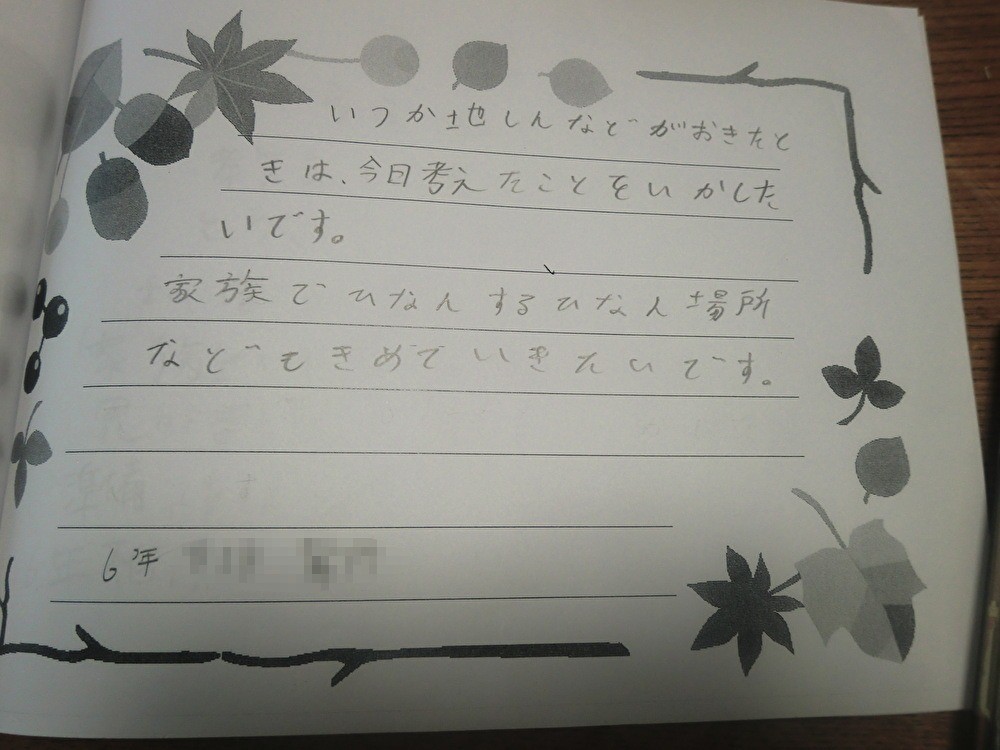 いつか地しんなどがおきたと
きは、今日考えたことをいかした
いです。
家族でひなんするひなん場所
などもきめていきたいです。
6年